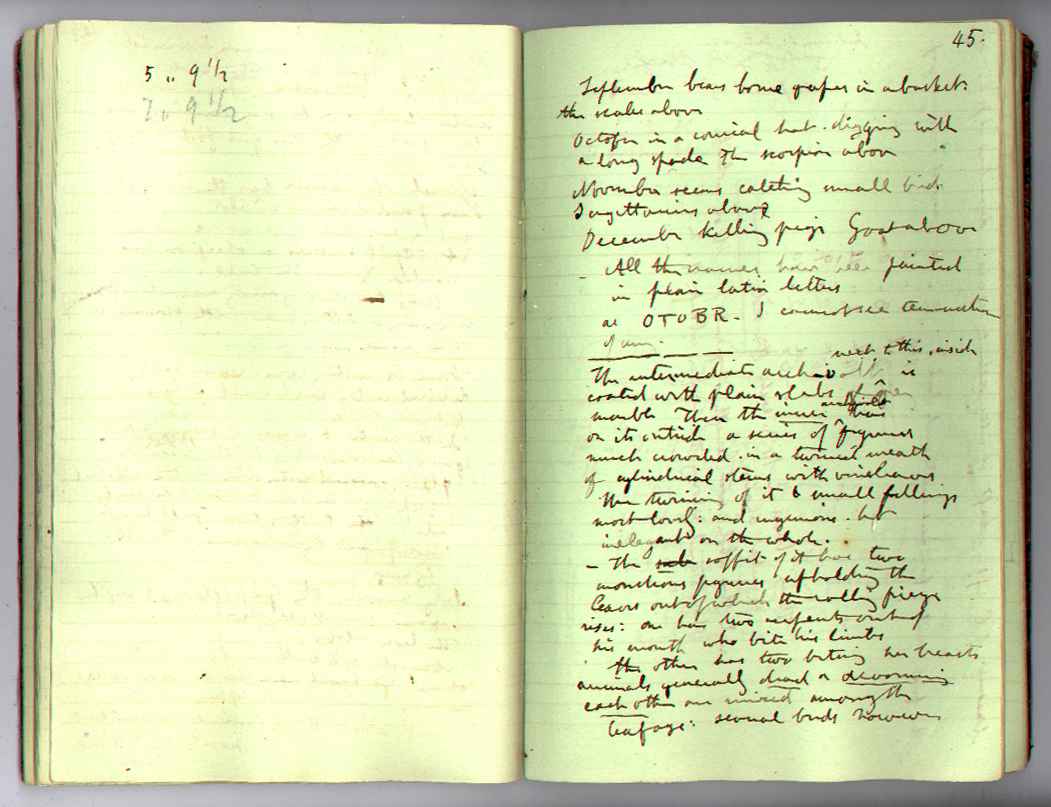 5 .. 9 1/2
7 .. 9 1/2
45.
September bears home grapes in a basket:
the scales above
October in a conical hat. digging with
a long spade The scorpion above
November seems catching small birds
Sagittarius above
December killing pigs Goat above
- All the names have been painted
in plain latin letters
as OTOBR - I cannot see termination
of any.
next to this, inside
The intermediate archivolt is
coated with plain slabs of green
marble Then the inner archivolt has
on its outside a series of figures
much crowded. in a twined wreath
of cylindrical stems with vineleaves
The twining of it & small fillings
most lovely: and ingenious. but
inelegant on the whole.
- The soffit of it has two
monstrous figures upholding the
leaves out of which the rolling frieze
rises: one has two serpents out of
his mouth who bite his limbs
the other has two biting her breasts
animals generally dead or devouring
each other are mixed among the
leafage: several birds however